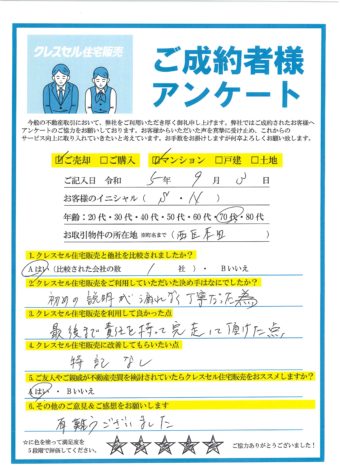 クレスセル住宅販売
ご成約者様
アンケート
今般の不動産取引において、弊社をご利用いただき厚く御礼申し上げます。弊社ではご成約されたお客様へ
アンケートのご協力をお願いしております。お客様からいただいた声を真摯に受け止め、これからの
サービス向上に取り入れていきたいと考えています。お手数をお掛けしますが何卒よろしくお願い致します。
☑ご売却 □ご購入 ☑マンション □戸建 □土地
ご記入日 令和 5年 9月 3日
お客様のイニシャル ( S・N )
年齢:20代・30代・40代・50代・60代・70代・80代
お取引物件の所在地 ※町名まで ( 西区 )
1.クレスセル住宅販売と他社を比較されましたか?
Aはい(比較された会社の数 1 社)・Bいいえ
2.クレスセル住宅販売をご利用していただいた決め手はなにでしたか?
初めの説明が漏れなく丁寧だった為
3.クレスセル住宅販売を利用して良かった点
最後まで責任を持って完走って頂けた点
4.クレスセル住宅販売に改善してもらいたい点
特記なし
5.ご友人やご親戚が不動産売買を検討されていたらクレスセル住宅販売をおススメしますか?
Aはい・Bいいえ
6.その他のご意見&ご感想をお願いします
有難うございました
☆に色を塗って満足度を
5段階で評価してください。
ご協力ありがとうございました!